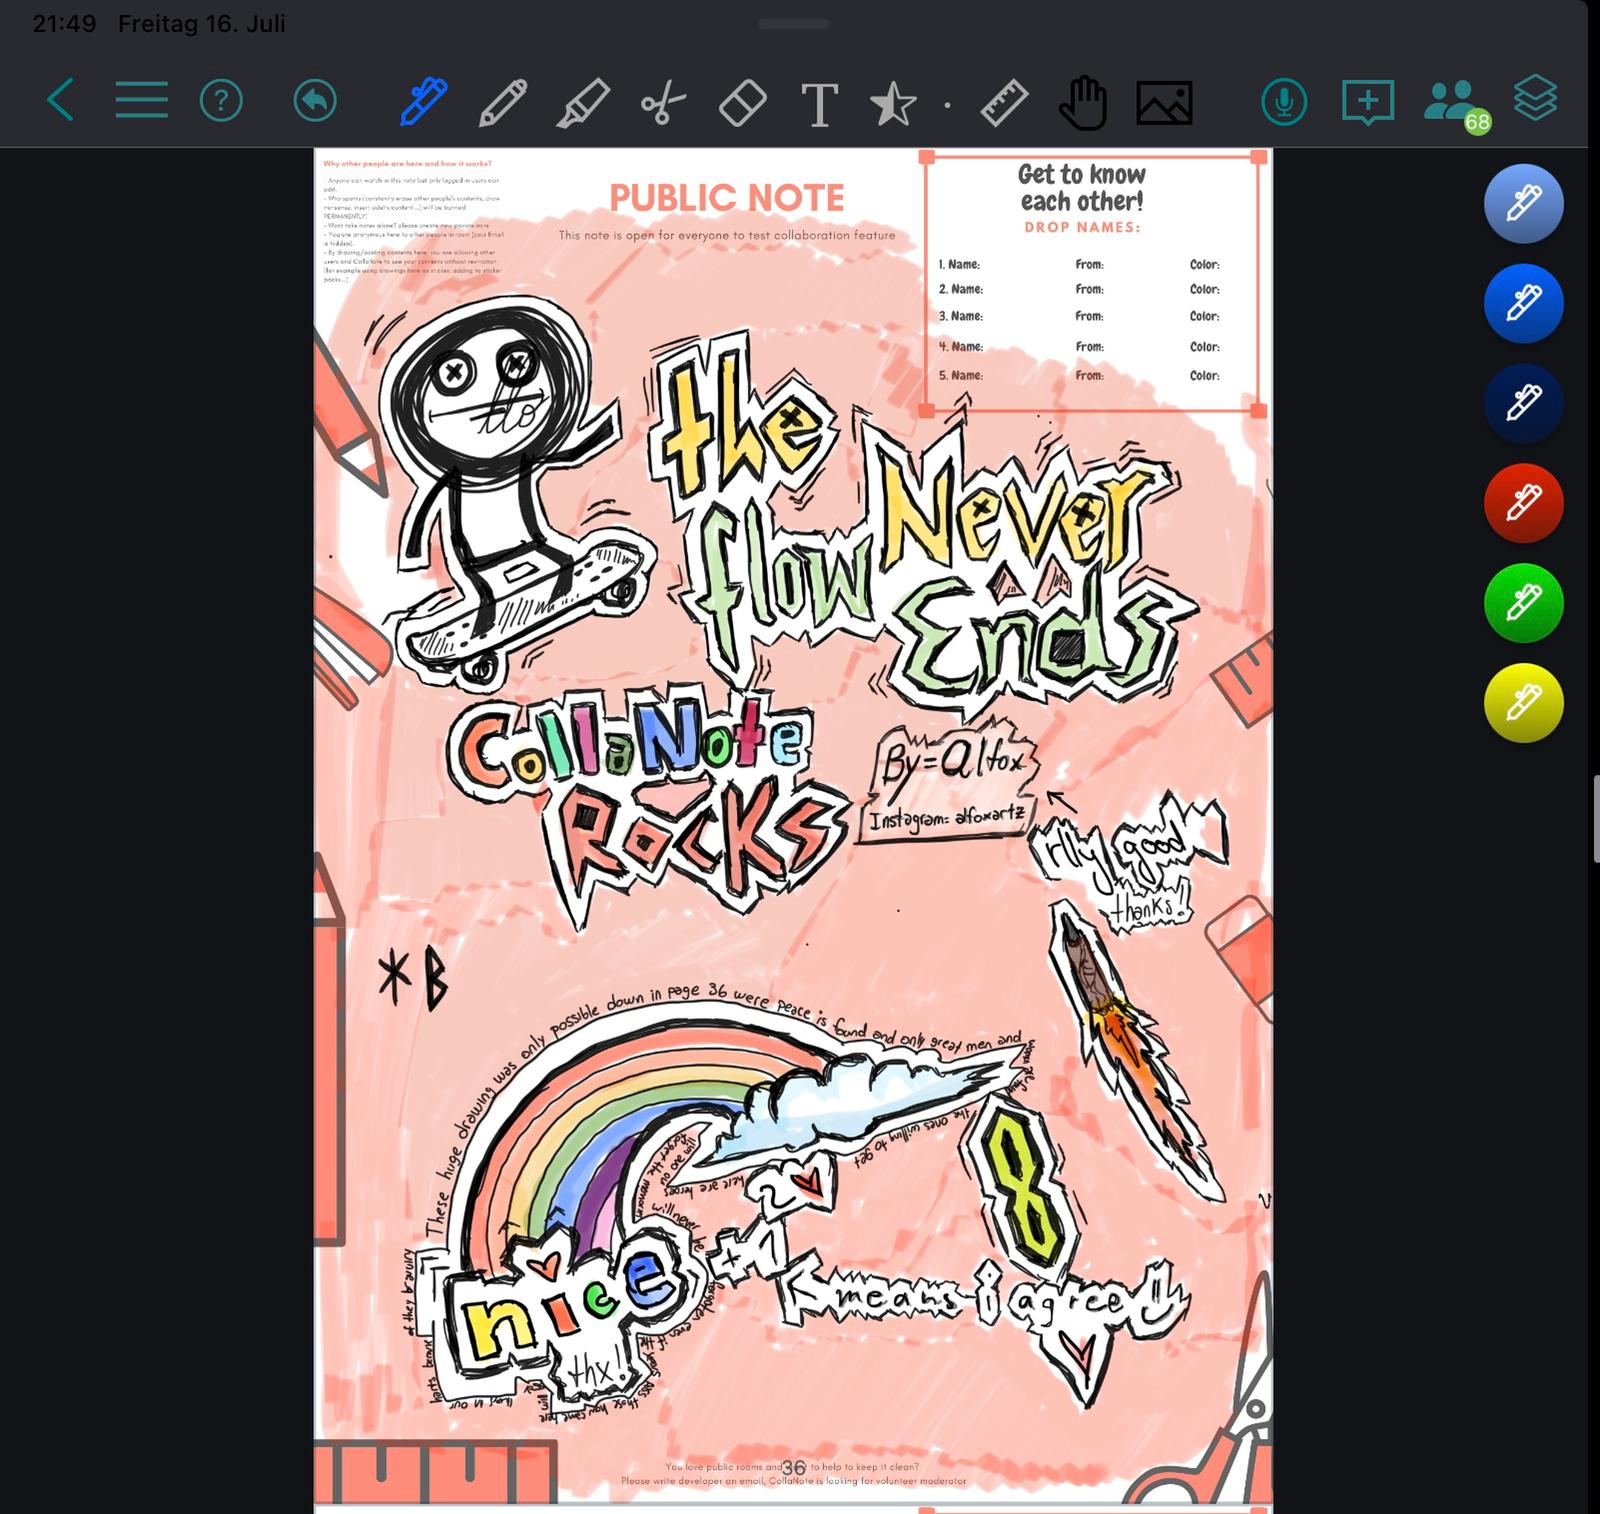 21:49 Freitag 16. Juli
?
T
68
Why other people are here and how it works?
- Anyone can watch in this note but only logged in users can
edit.
- Who spams (constantly erase other people's contents, draw
nonsense, insert adults content...) will be banned
PERMANENTLY!
- Want take notes alone? please create new private note
- You are anonymous here to other people in room (your Email
is hidden).
- By drawing/posting contents here, you are allowing other
users and CollaNote to see your contents without restriction
(for example using drawings here as sticker, adding to sticker
packs...)
PUBLIC NOTE
This note is open for everyone to test collaboration feature
Get to know
each other!
DROP NAMES:
1. Name: From: Color:
2. Name: From: Color:
3. Name: From: Color:
4. Name: From: Color:
5. Name: From: Color:
the
flow
Never
Ends
CollaNote
Rocks
By=Alfox
Instagram= alfoxartz
rlly good
thanks!
*B
These huge drawing was only possible down in page 36 were peace is found and only great men and
the ones willing to get
here are heroes
will never be
8
2
+1
means i agree
nice
thx!
36
You love public rooms and to help to keep it clean?
Please write developer an email, CollaNote is looking for volunteer moderator